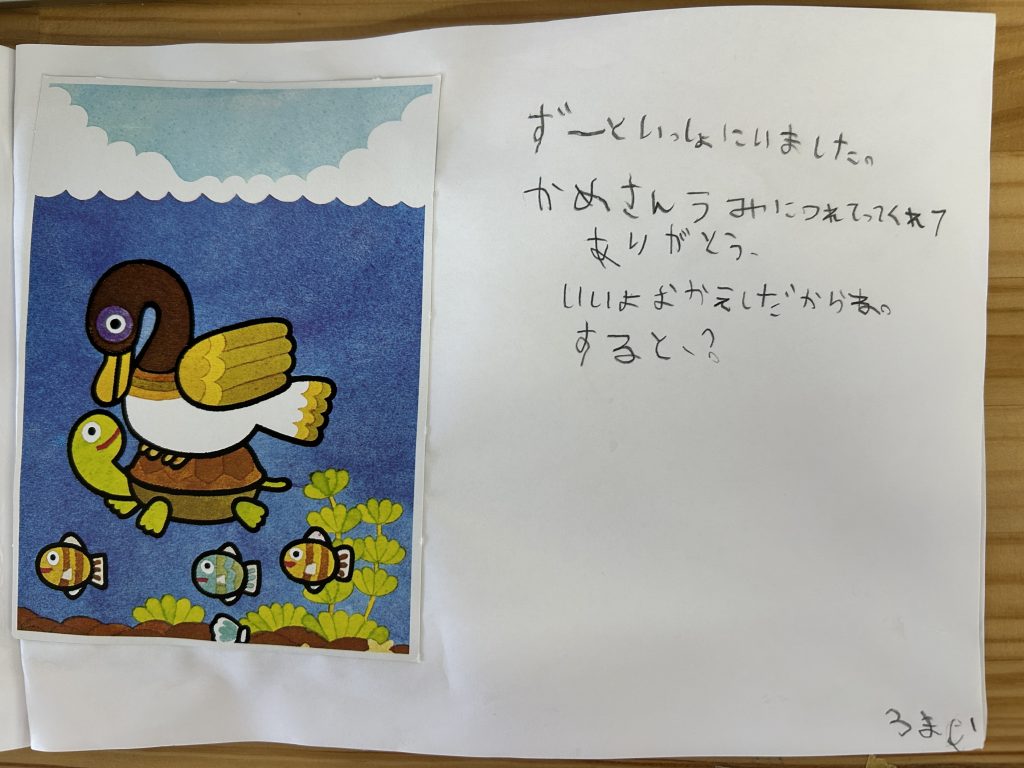 ずーといっしょにいました。
かめさんうみにつれてってくれて
ありがとう、
いいよおかえしだからね。
すると、?
3まい